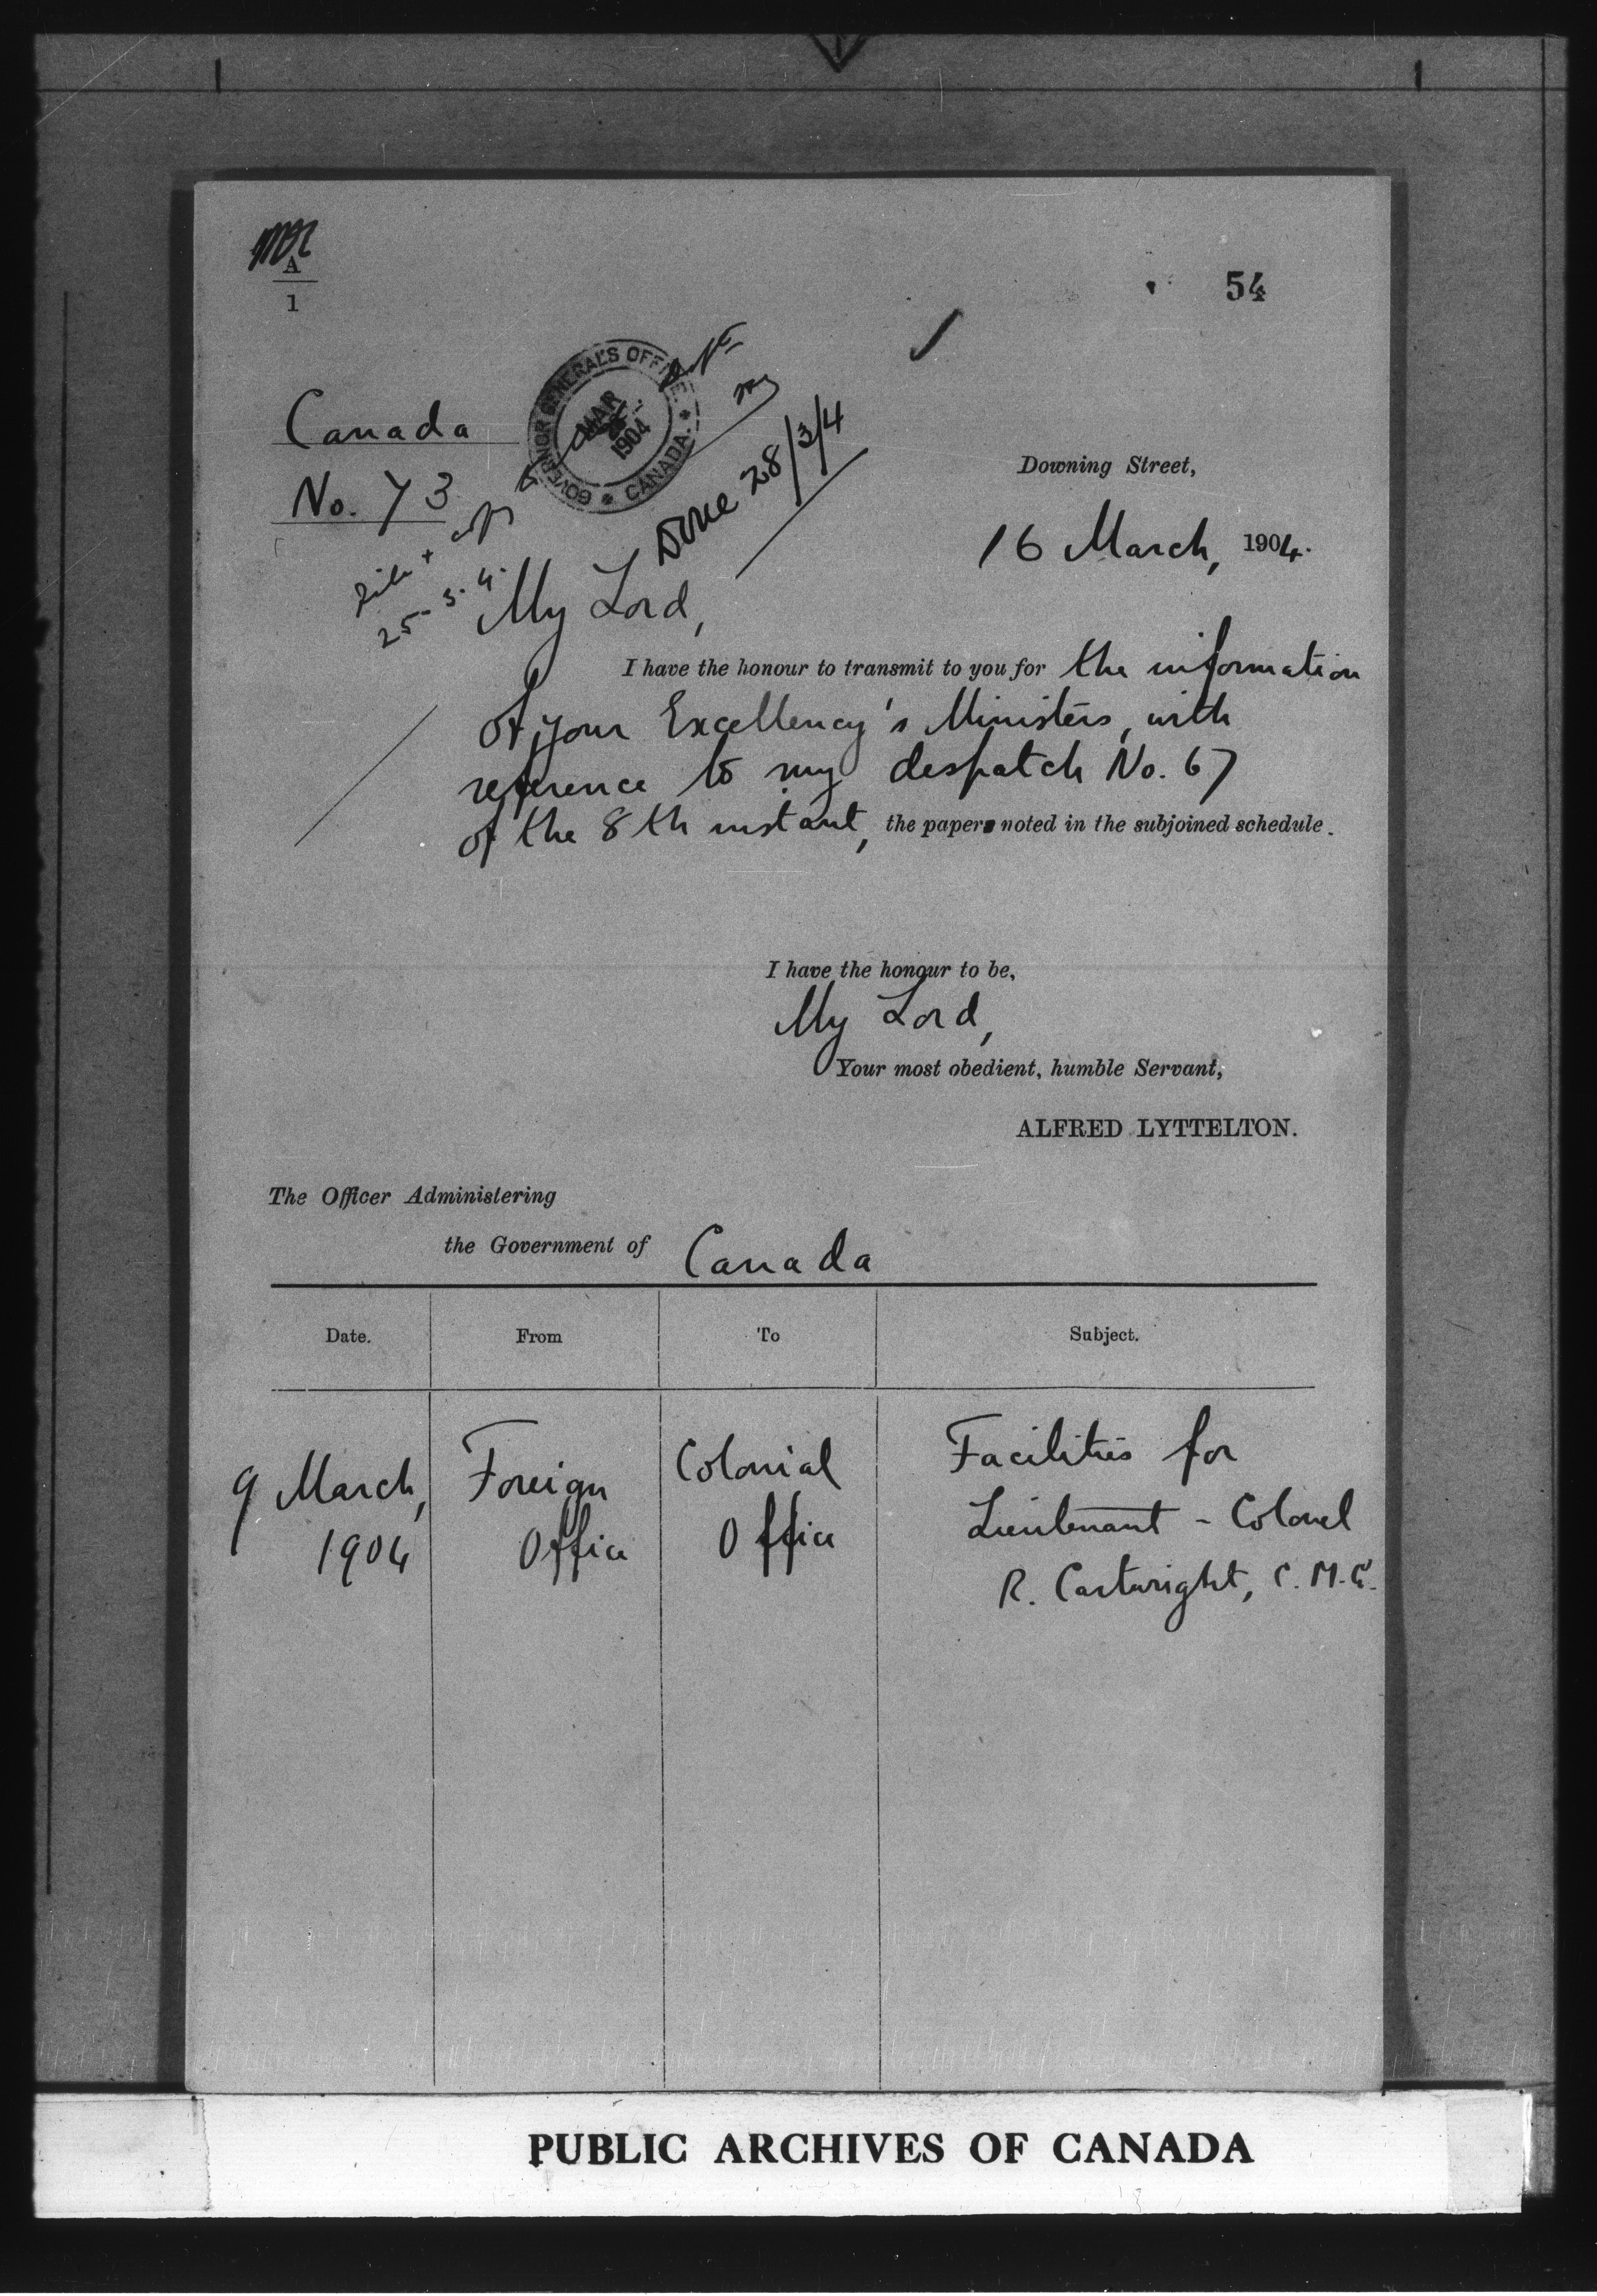 A
1
54
GOVERNOR GENERAL'S OFFICE. * CANADA. *
MAR
1904
Canada
No. 73
copy
25-3-4.
Done 28/3/4
Downing Street,
16 March, 1904.
My Lord,
I have the honour to transmit to you for the information
of your Excellency's Ministers, with
reference to my despatch No. 67
of the 8th instant, the paper noted in the subjoined schedule.
I have the honour to be,
My Lord,
Your most obedient, humble Servant,
ALFRED LYTTELTON.
The Officer Administering
the Government of Canada
Date. From To Subject.
9 March, Foreign Colonial Facilities for
1904 Office Office Lieutenant - Colonel
R. Cartwright, C.M.G.
PUBLIC ARCHIVES OF CANADA